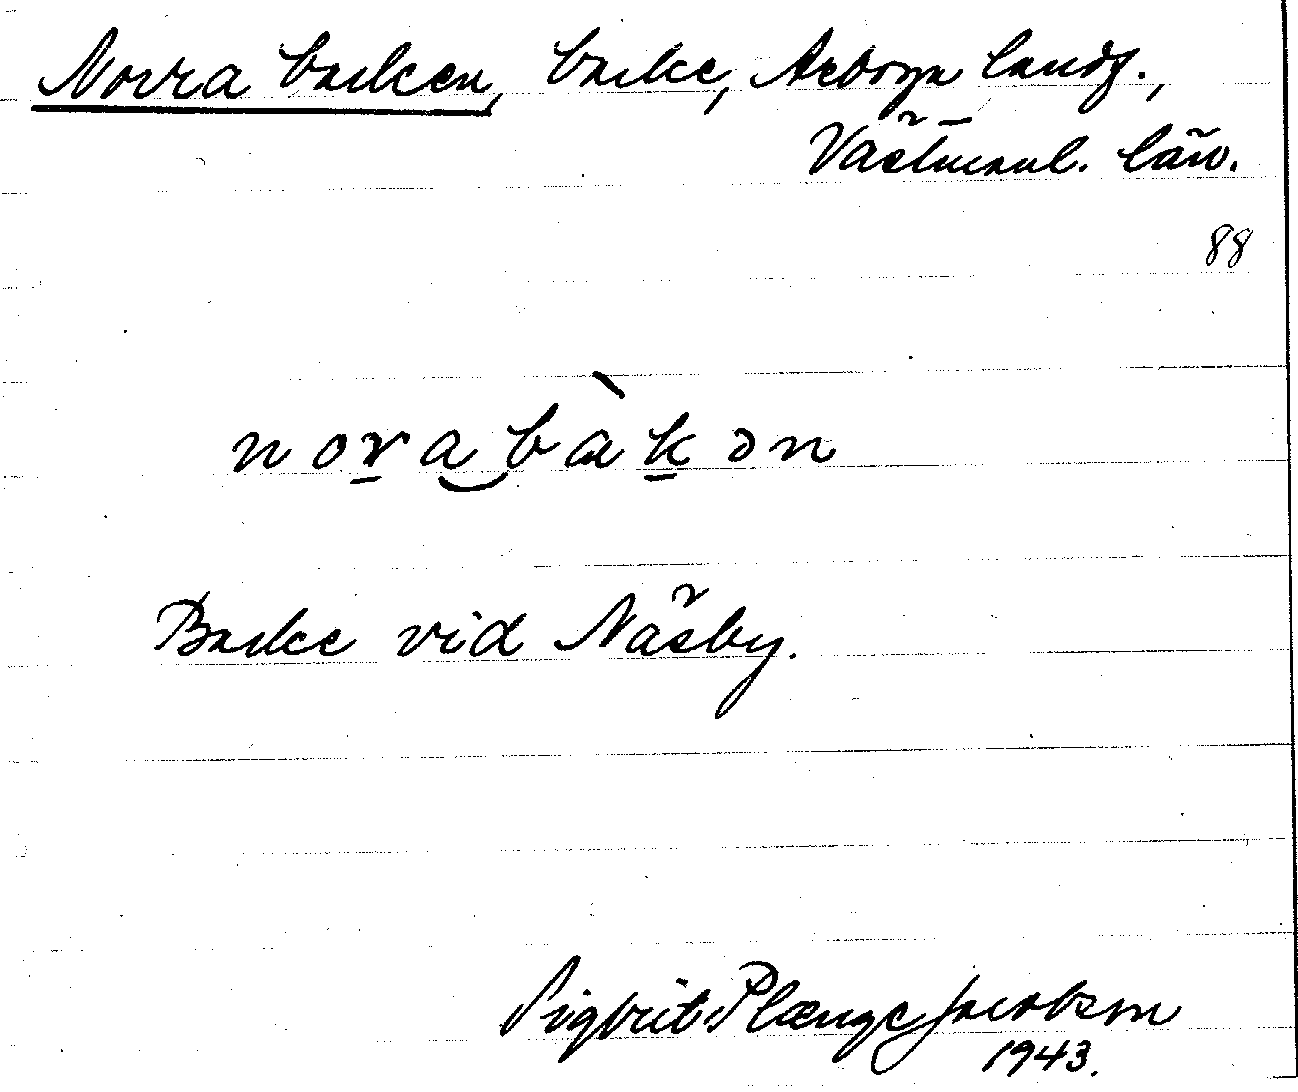 Norra backen, backe, Arboga landsf.,
Västmanl. län.
88
norabàkən
Backe vid Näsby.
Sigbrit Plænge Jacobson
1943.